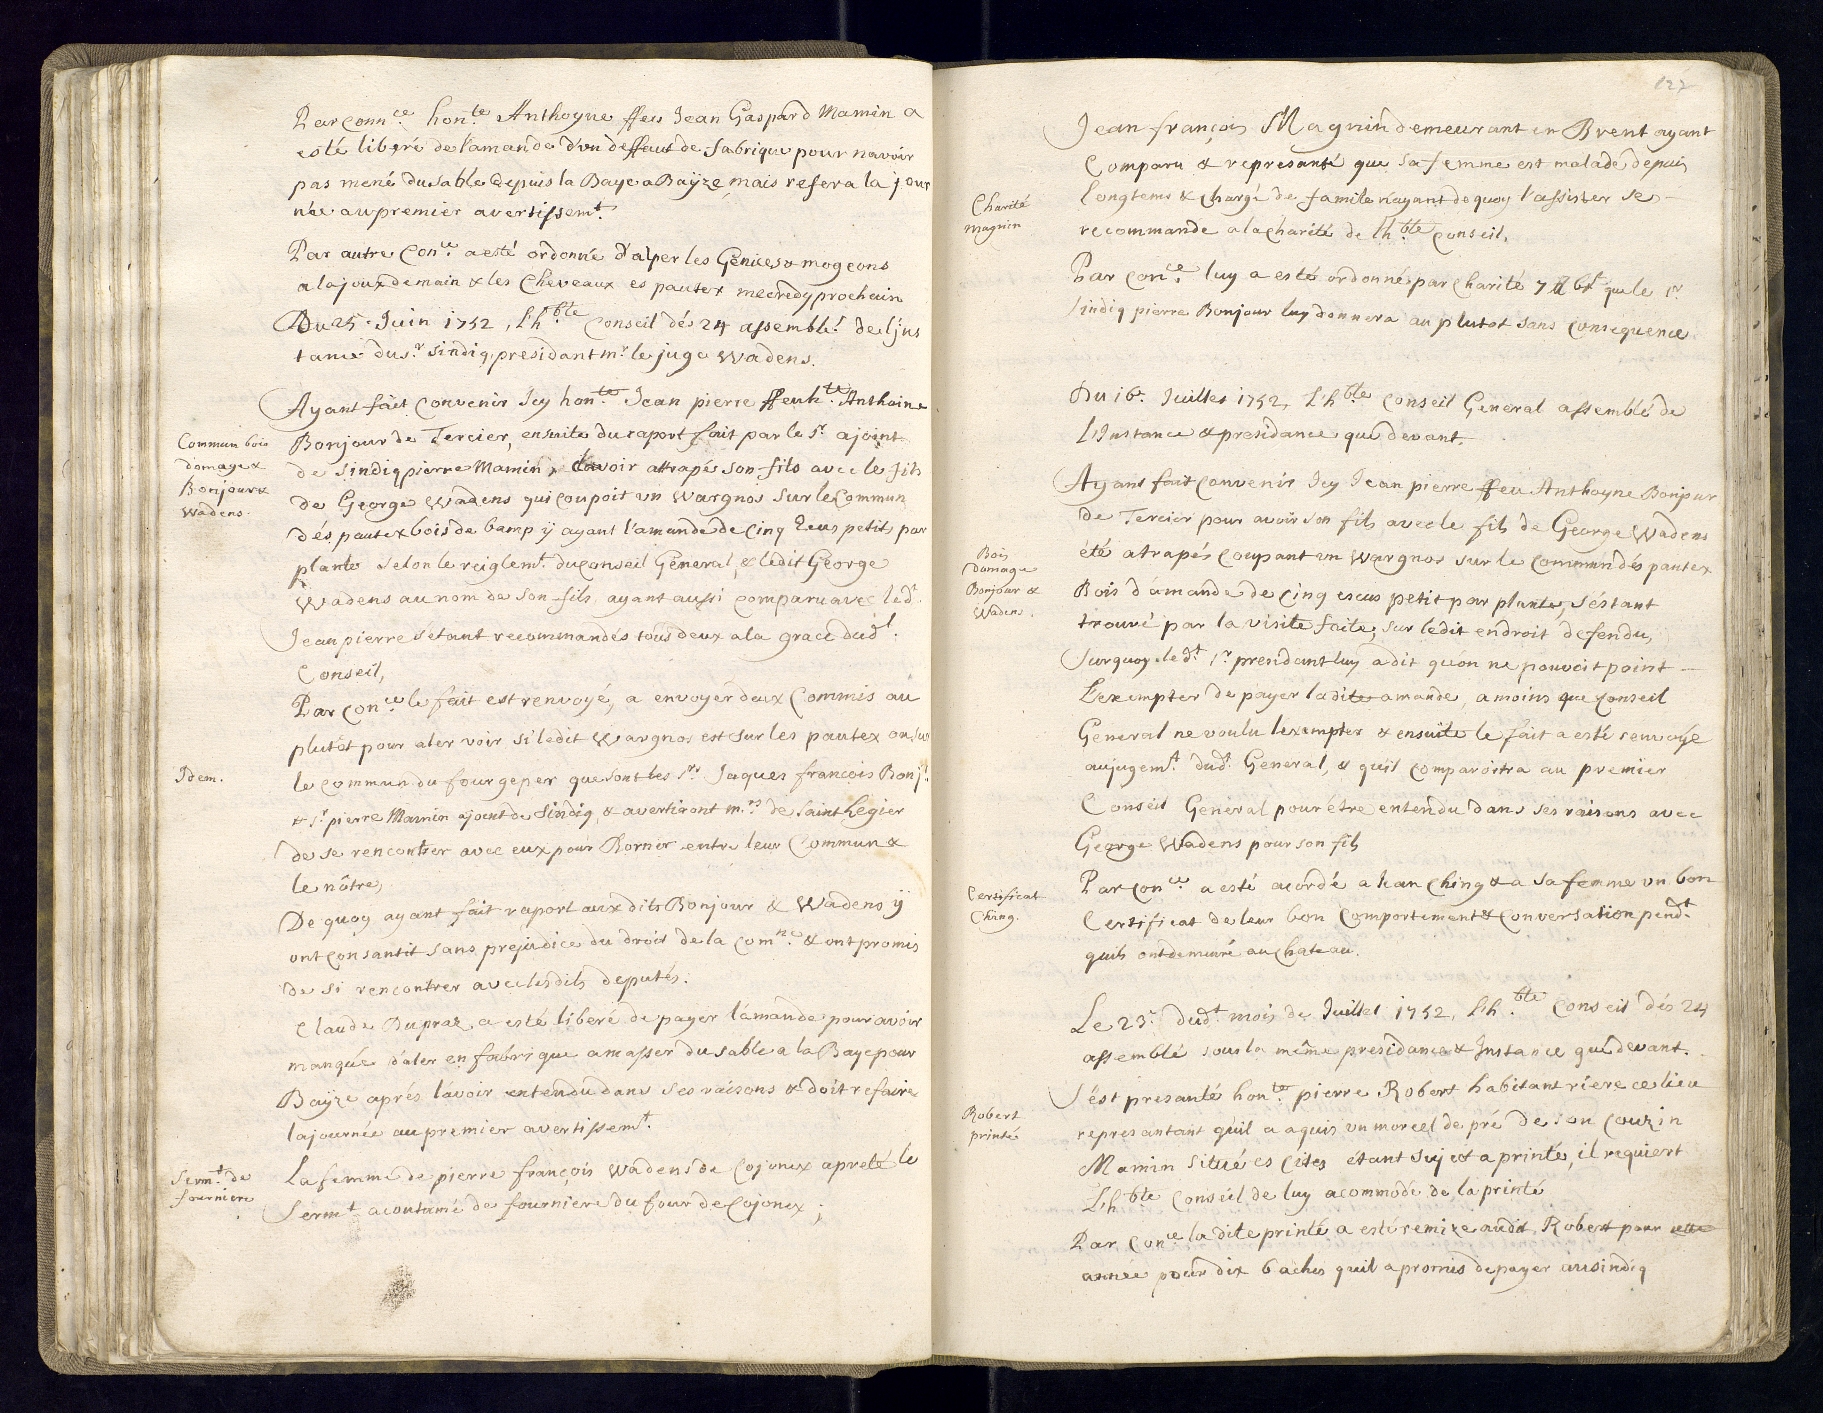 Par Conn.ce hon.te Anthoyne ffeu Jean Gaspard Mamin a
esté liberé de l'amande d'un deffaut de fabrique pour navoir
pas mené du sable depuis la Baye a Baÿze, mais refera la jour
née au premier avertissem.t
Par autre Con.ce a esté ordonné d'alper les Genices & mogeons
a la joux demain & les Cheveaux es pautex mecredy prochain
Du 25. Juin 1752, L'h.ble Conseil dés 24 assemblé de l'jns
tance du s.r sindiq, presidant m.r le juge Wadens.
Ayant fait Convenir Icy hon.te Jean pierre ffeu h.te Anthoine
Commun bois
domage &
Bonjour &
Wadens.
Bonjour de Tercier, ensuite du raport fait par le s.r ajoint
de sindiq pierre Mamin, d'avoir attrapés son fils avec le fils
de George Wadens qui coupoit un Wargnos sur le Commun
dés pautex bois de bamp ÿ ayant l'amande de Cinq Ecus petits par
plante selon le reiglem.t du Conseil General, & ledit George
Wadens au nom de son fils ayant aussi comparu avec led.t
Jean pierre s'étant recommandés tous deux a la grace dud.t
Conseil,
Par Con.ce le fait est renvoyé, a envoyer deux Commis au
plutôt pour aler voir si ledit Wargnos est sur les pautex ou sur
Idem.
le Commun du fourgeper que sont les s.rs Jaques françois Bonj.r
& s.r pierre Mamin ajoint de sindiq, & avertiront m.rs de Saint Legier
de se rencontrer avec eux pour Borner entre leur Commun &
le nôtre,
De quoy ayant fait raport aux dits Bonjour & Wadens ÿ
ont consantit sans prejudice du droit de la Com.ne & ont promis
de si rencontrer avec lesdits deputés.
Claude Dupraz a esté liberé de payer l'amande pour avoir
manqué d'aler en fabrique amasser du sable a la Baye pour
Baÿze aprés lavoir entendu dans ses raisons & doit refaire
la journée au premier avertissem.t
Serm.t de
fourniere
La femme de pierre françois Wadens de Cojonex a preté le
Serm.t acoutumé de fourniere du four de Cojonex ;
127
Jean françois Magnin demeurant en Brent ayant
Comparu & represanté que sa femme est malade depuis
Charité
magnin
longtems & chargé de famile n'ayant de quoy l'assister se
recommande a la charité de l'h.ble Conseil,
Par Con.ce luy a esté ordonné par Charité 7 que le s.r
sindiq pierre Bonjour luy donnera au plutot sans consequence.
Du 16.e Juillet 1752, L'h.ble Conseil General assemblé de
L'Instance & presidance que devant.
Ayant fait Convenir Icy Jean pierre ffeu Anthoyne Bonjour
de Tercier pour avoir son fils avec le fils de George Wadens
Bois
Domage
Bonjour &
Wadens.
été atrapés coupant un Wargnos sur le commun dés pautex
Bois d'amande de Cinq escus petit par plante, s'éstant
trouvé par la visite faite, sur ledit endroit defendu,
Surquoy led.t s.r presidant luy a dit qu'on ne pouvoit point
L'exempter de payer ladite amande, a moins que Conseil
General ne voulu lexempter & ensuite le fait a esté renvoyé
au jugem.t dud.t General, & quil Comparoistra au premier
Conseil General pour étre entendu dans ses raisons avec
George Wadens pour son fils
Certificat
Ching.
Par Con.ce a esté acordé a Jean Ching & a sa femme un bon
Certificat de leur bon Comportement & Conversation pend.t
quils ont demeuré au Chateau.
Le 23.e dud.t mois de Juillet 1752, L'h.ble Conseil dés 24
assemblé sous la même presidance & Instance que devant.
Robert
printé
S'ést presanté hon.te pierre Robert habitant riere ce lieu
represantant qu'il a aquis un morcel de pré de son Couzin
Mamin situé es Cites étant sujet a printé, il requiert
L'h.ble Conseil de luy acommodé de la printé
Par Con.ce ladite printé a esté remize audit Robert pour cette
année pour dix baches quil a promis de payer au sindiq